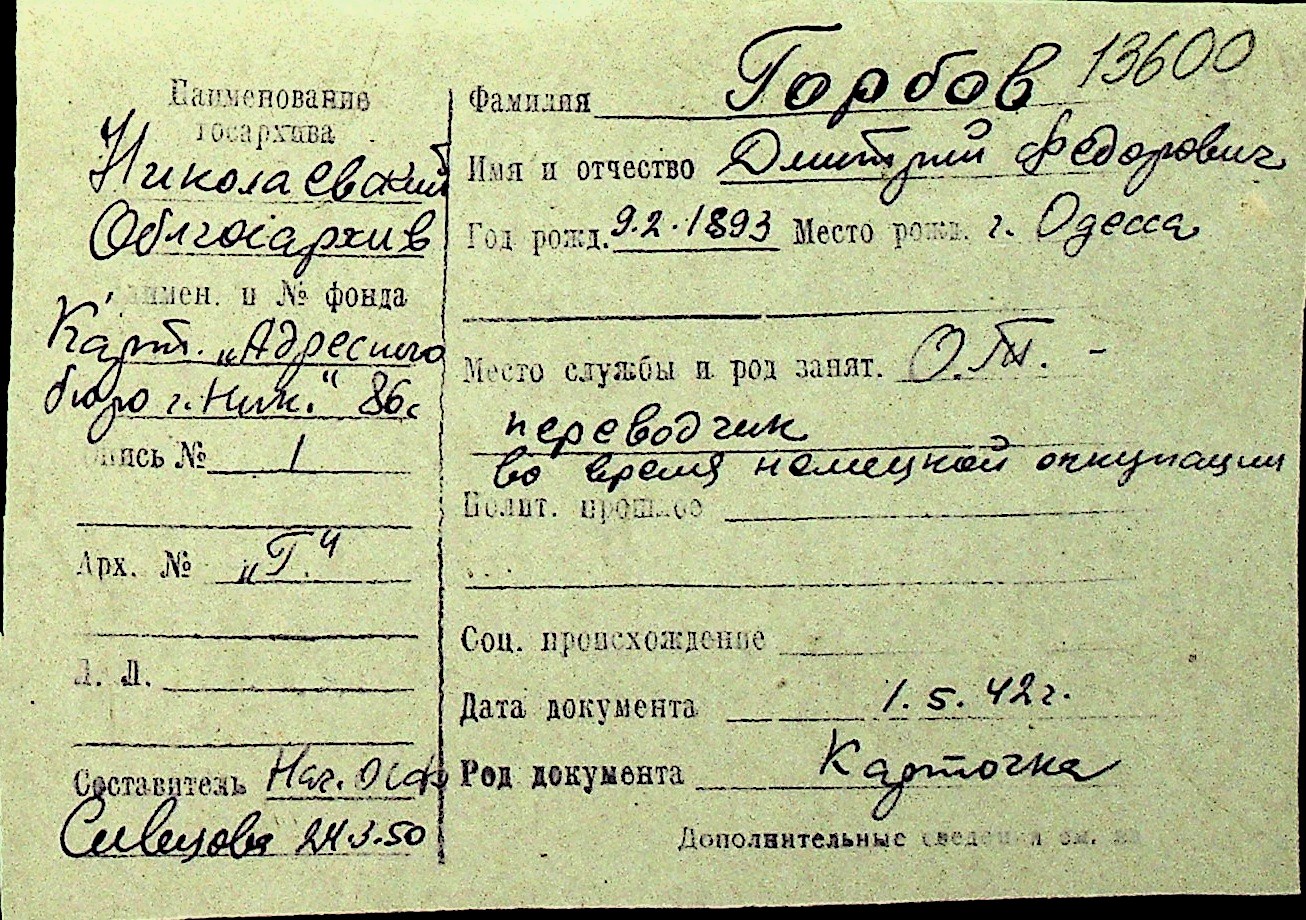 Наименование
госархива
Николаевский
Облгосархив
Наимен. и № фонда
Карт. „Адресного
бюро г. Ник." 86с
Опись № 1
Арх. № „Г."
Л. Л.
Составитель Нач. ОСФ
24.3.50
13600
Фамилия Горбов
Имя и отчество Дмитрий Федорович
Год рожд. 9.2.1893 Место рожд. г. Одесса
Место службы и род занят. О.Т. -
переводчик
во время немецкой оккупации
Полит. прошлое
Соц. происхождение
Дата документа 1.5.42г.
Род документа Карточка
Дополнительные сведения см. на